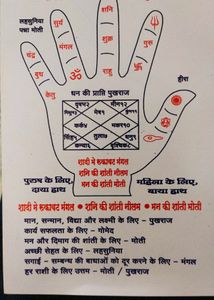 लहसुनिया
पन्ना मोती
शनि
सूर्य
गुरु
शुक्र
चंद्र
मंगल
राहु
ॐ
बुध
केतु
हीरा
धन की प्राप्ति पुखराज
शादी मे रूकावट मंगल
शनि की शांती नीलम
मन की शांती मोती
पुरुष के लिए,
दाया हाथ
महिला के लिए,
बाया हाथ
शादी मे रूकावट मंगल • शनि की शांती नीलम • मन की शांती मोती
मान, सन्मान, विद्या और लक्ष्मी के लिए - पुखराज
कार्य सफलता के लिए - गोमेद
मन और दिमाग की शांती के लिए - मोती
अच्छी सेहत के लिए - लहसुनिया
सगाई - सम्बन्ध की बाधाओं को दूर करने के लिए - मंगल
हर राशी के लिए उत्तम - मोती / पुखराज